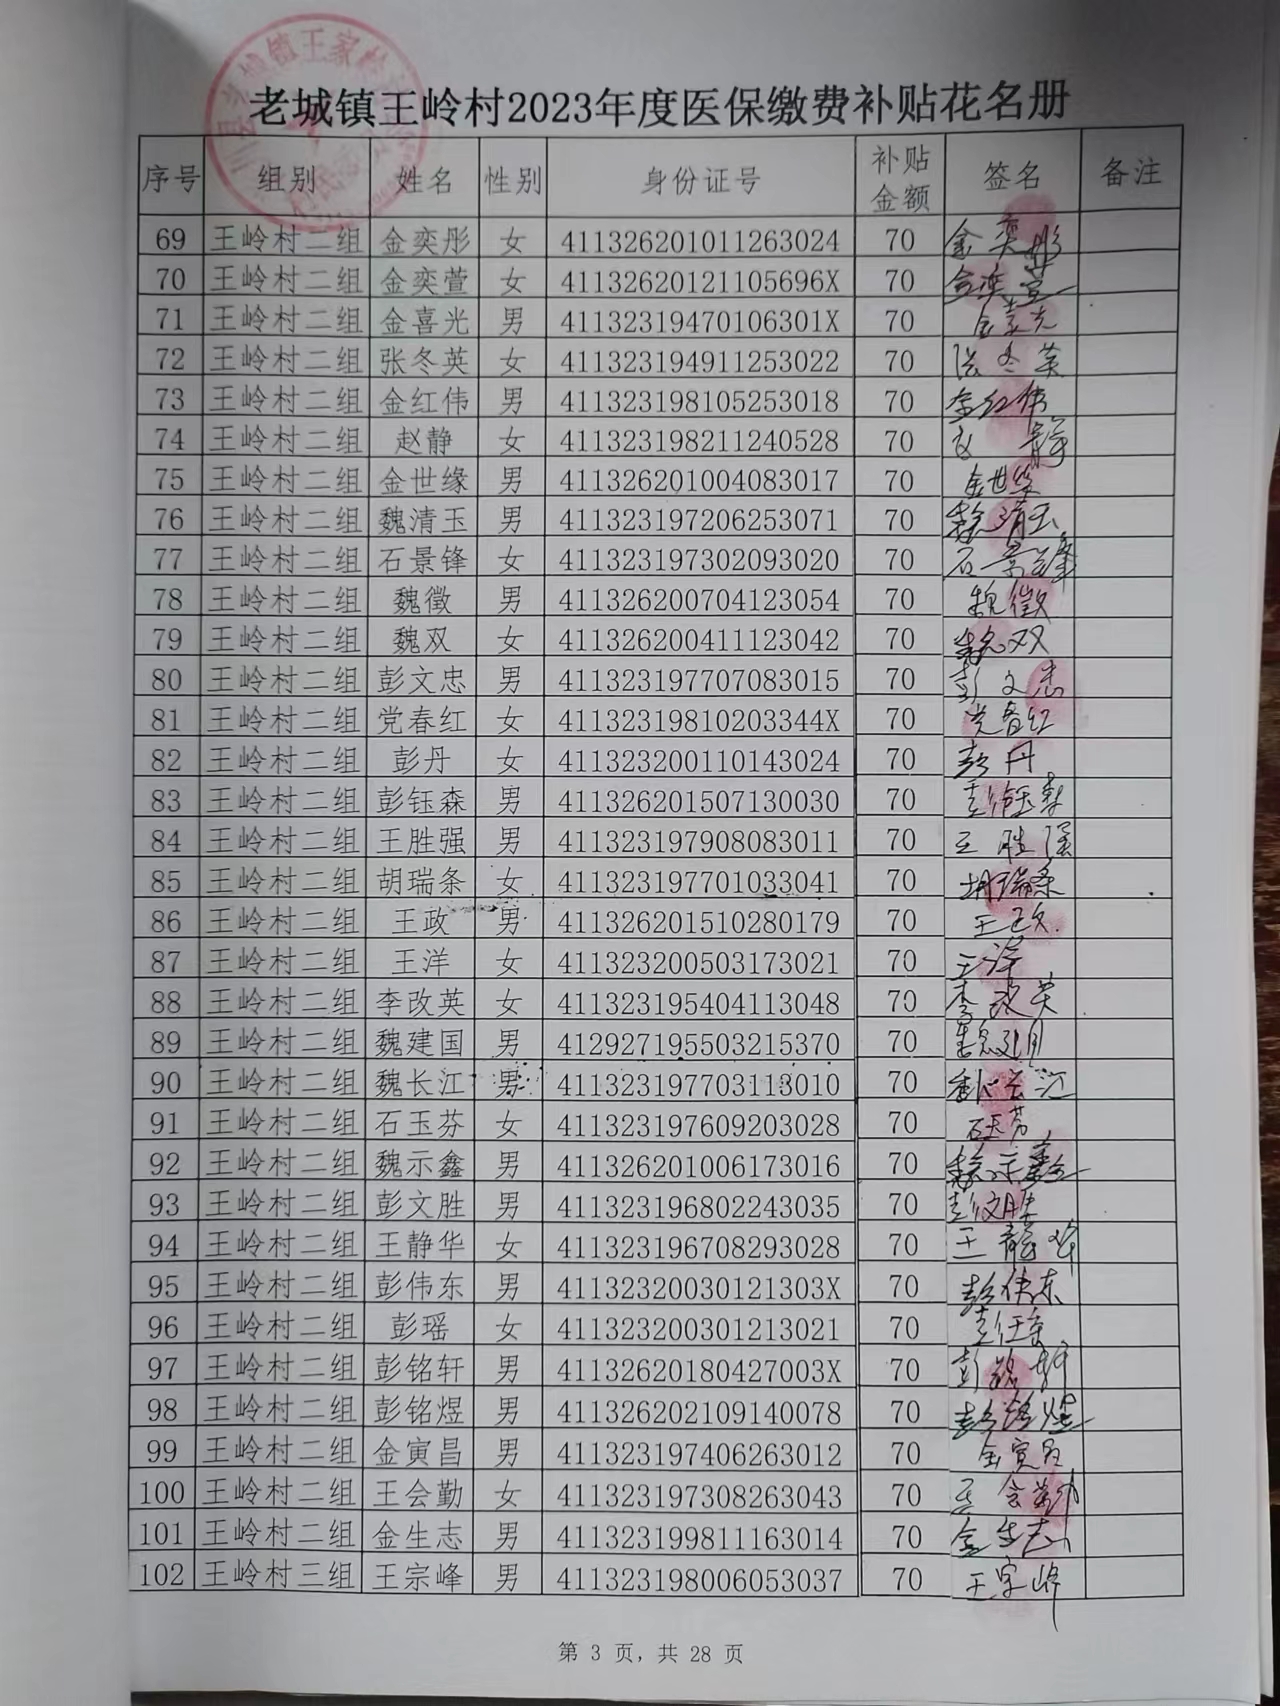 老城镇王岭村2023年度医保缴费补贴花名册
序号 组别 姓名 性别 身份证号 补贴金额 签名 备注
69 王岭村二组 金奕彤 女 411326201011263024 70 金奕彤
70 王岭村二组 金奕萱 女 41132620121105696X 70 金奕萱
71 王岭村二组 金喜光 男 41132319470106301X 70 金喜光
72 王岭村二组 张冬英 女 411323194911253022 70 张冬英
73 王岭村二组 金红伟 男 411323198105253018 70 金红伟
74 王岭村二组 赵静 女 411323198211240528 70 赵静
75 王岭村二组 金世缘 男 411326201004083017 70 金世
76 王岭村二组 魏清玉 男 411323197206253071 70 魏清玉
77 王岭村二组 石景锋 女 411323197302093020 70 石景锋
78 王岭村二组 魏徵 男 411326200704123054 70 魏徵
79 王岭村二组 魏双 女 411326200411123042 70 魏双
80 王岭村二组 彭文忠 男 411323197707083015 70 彭文忠
81 王岭村二组 党春红 女 41132319810203344X 70 党春红
82 王岭村二组 彭丹 女 411323200110143024 70 彭丹
83 王岭村二组 彭钰森 男 411326201507130030 70 彭钰森
84 王岭村二组 王胜强 男 411323197908083011 70 王胜强
85 王岭村二组 胡瑞条 女 411323197701033041 70 胡瑞条
86 王岭村二组 王政 男 411326201510280179 70 王政
87 王岭村二组 王洋 女 411323200503173021 70 王洋
88 王岭村二组 李改英 女 411323195404113048 70 李改英
89 王岭村二组 魏建国 男 412927195503215370 70 魏建国
90 王岭村二组 魏长江 男 411323197703113010 70 魏长江
91 王岭村二组 石玉芬 女 411323197609203028 70 石玉芬
92 王岭村二组 魏示鑫 男 411326201006173016 70 魏示鑫
93 王岭村二组 彭文胜 男 411323196802243035 70 彭文胜
94 王岭村二组 王静华 女 411323196708293028 70 王静华
95 王岭村二组 彭伟东 男 41132320030121303X 70 彭伟东
96 王岭村二组 彭瑶 女 411323200301213021 70
97 王岭村二组 彭铭轩 男 41132620180427003X 70 彭铭轩
98 王岭村二组 彭铭煜 男 411326202109140078 70 彭铭煜
99 王岭村二组 金寅昌 男 411323197406263012 70 金寅昌
100 王岭村二组 王会勤 女 411323197308263043 70 王会勤
101 王岭村二组 金生志 男 411323199811163014 70 金生志
102 王岭村三组 王宗峰 男 411323198006053037 70 王宗峰
第 3 页，共 28 页